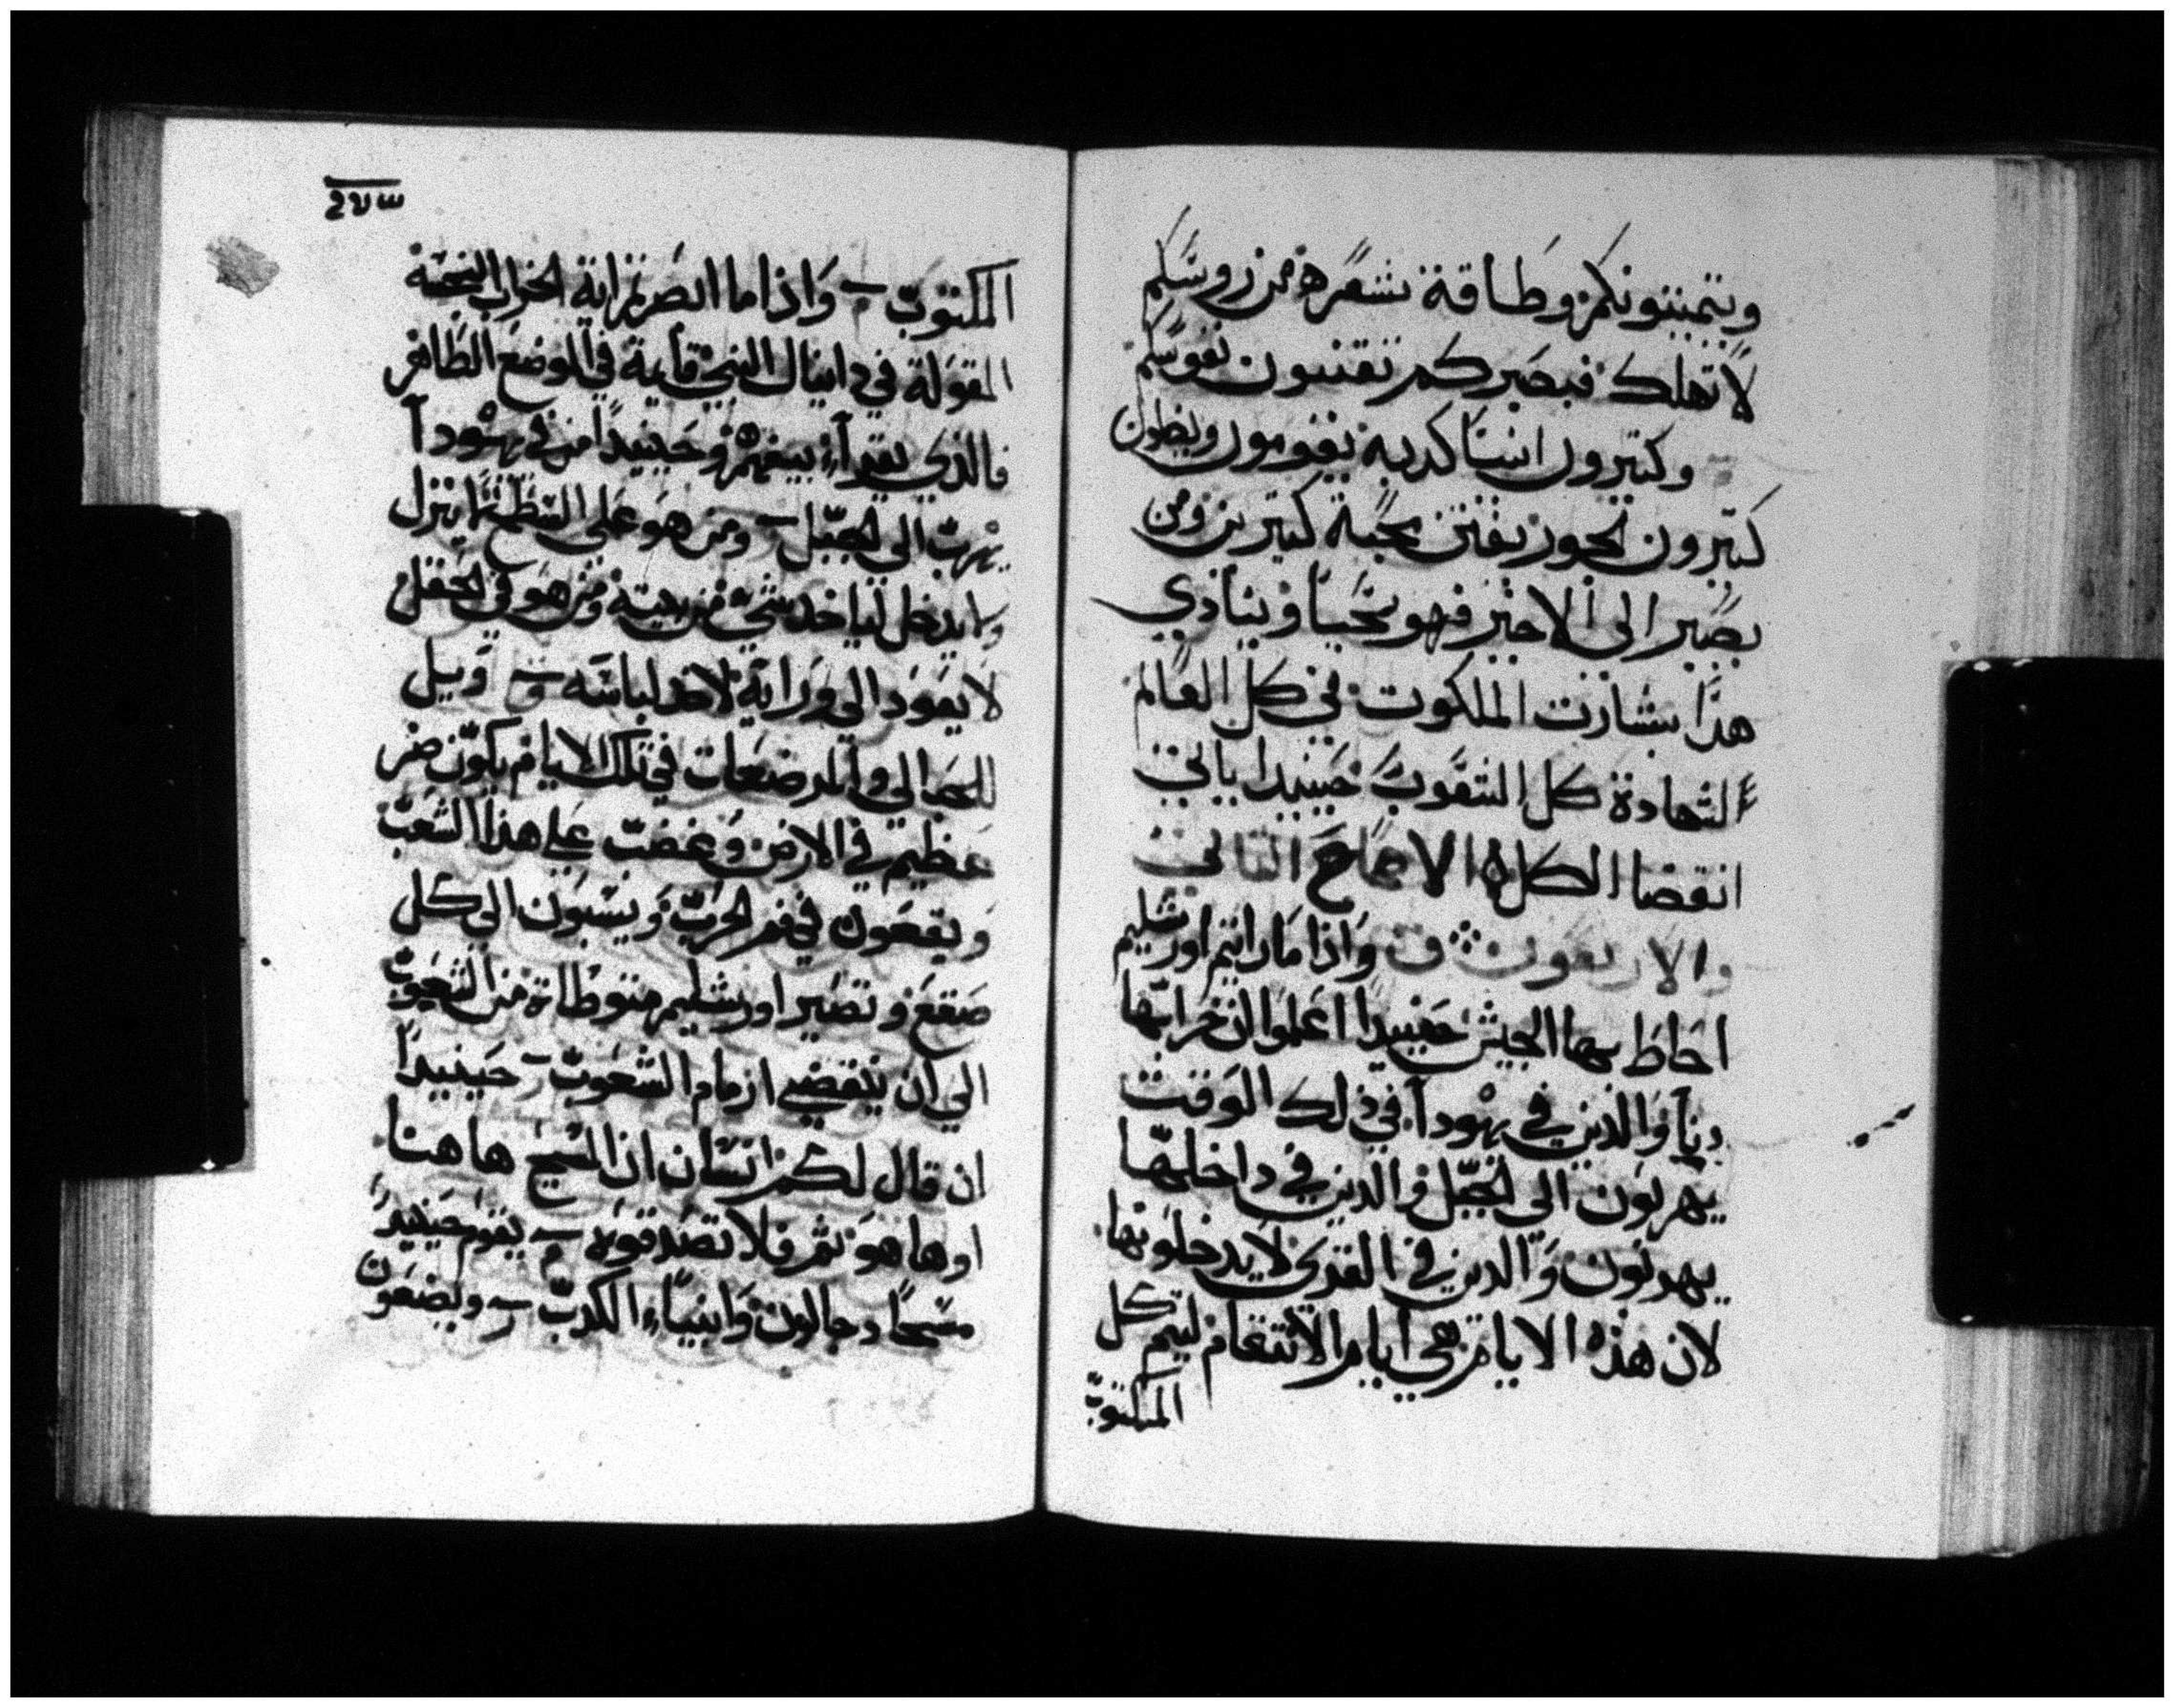 ويتمبتونكم وطاقة شعره من روسكم
لا تهلك فبصبركم تقتنون نفوسكم
وكتيرون انبيا كدبة يقومون ويضلون
كتيرون تجوز يفتن محبة كتيرين ومن
يصبر الى الاخير فهو يحيا وينادي
هذا بشارت الملكوت في كل العالم
لشهادة كل الشعوب حينيدا ياتي
انقضا الكل الاصحاح التاني
والاربعون ق واذا ما رايتم اورشليم
احاط بها الجيش حينيدا اعلموا ان خرابها
دنا والذين في يهودا في ذلك الوقت
يهربون الى الجبل والدين في داخلها
يهربون والدين في القرى لا يدخلونها
لان هذه الايام هي ايام الانتقام ليتم كل
المكتوب
المكتوب واذا ما ابصرتم اية الخراب النجسة
المقولة في دانيال النبي قايمة في الموضع الطاهر
فالذي يقرا يفهم وحينيدا من في يهودا
يهرب الى الجبل ومن هو على السطح لا ينزل
ولا يدخل لياخد شي من بيته ومن هو في الحقل
لا يعود الى ورايه لاخد لباسه وويل
للحبالى والمرضعات في تلك الايام يكون ضر
عظيم في الارض وغضب على هذا الشعب
ويقعون في فم الحرب ويسبون الى كل
صقع وتصير اورشليم متوطاة من الشعوب
الى ان ينقضي ازمام الشعوب حينيدا
ان قال لكم انسان ان المسيح هاهنا
او هاهو ثم فلا تصدقوه يقوم حينيد
مسحا دجالون وانبياء الكدب ويضعون